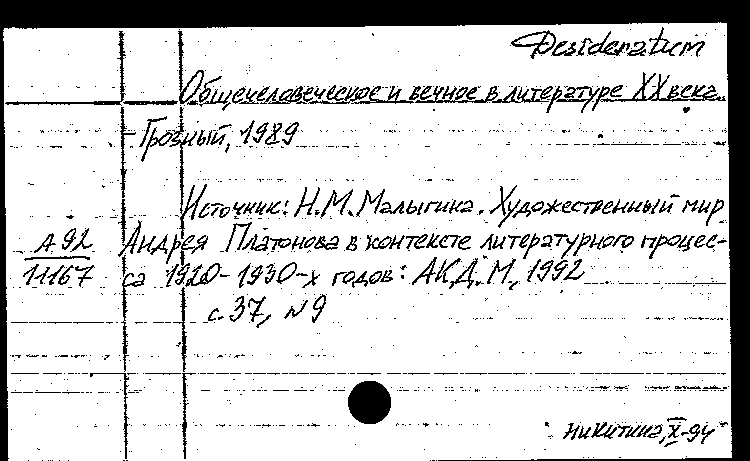 Desideratum
Общечеловеческое и вечное в литературе XX века.
- Грозный, 1989
Источник: Н.М. Малыгина. Художественный мир
А 92 Андрея Платонова в контексте литературного процес-
11167 са 1920-1930-х годов: АКД. М., 1992
с. 37, №9
Никитина, X-94